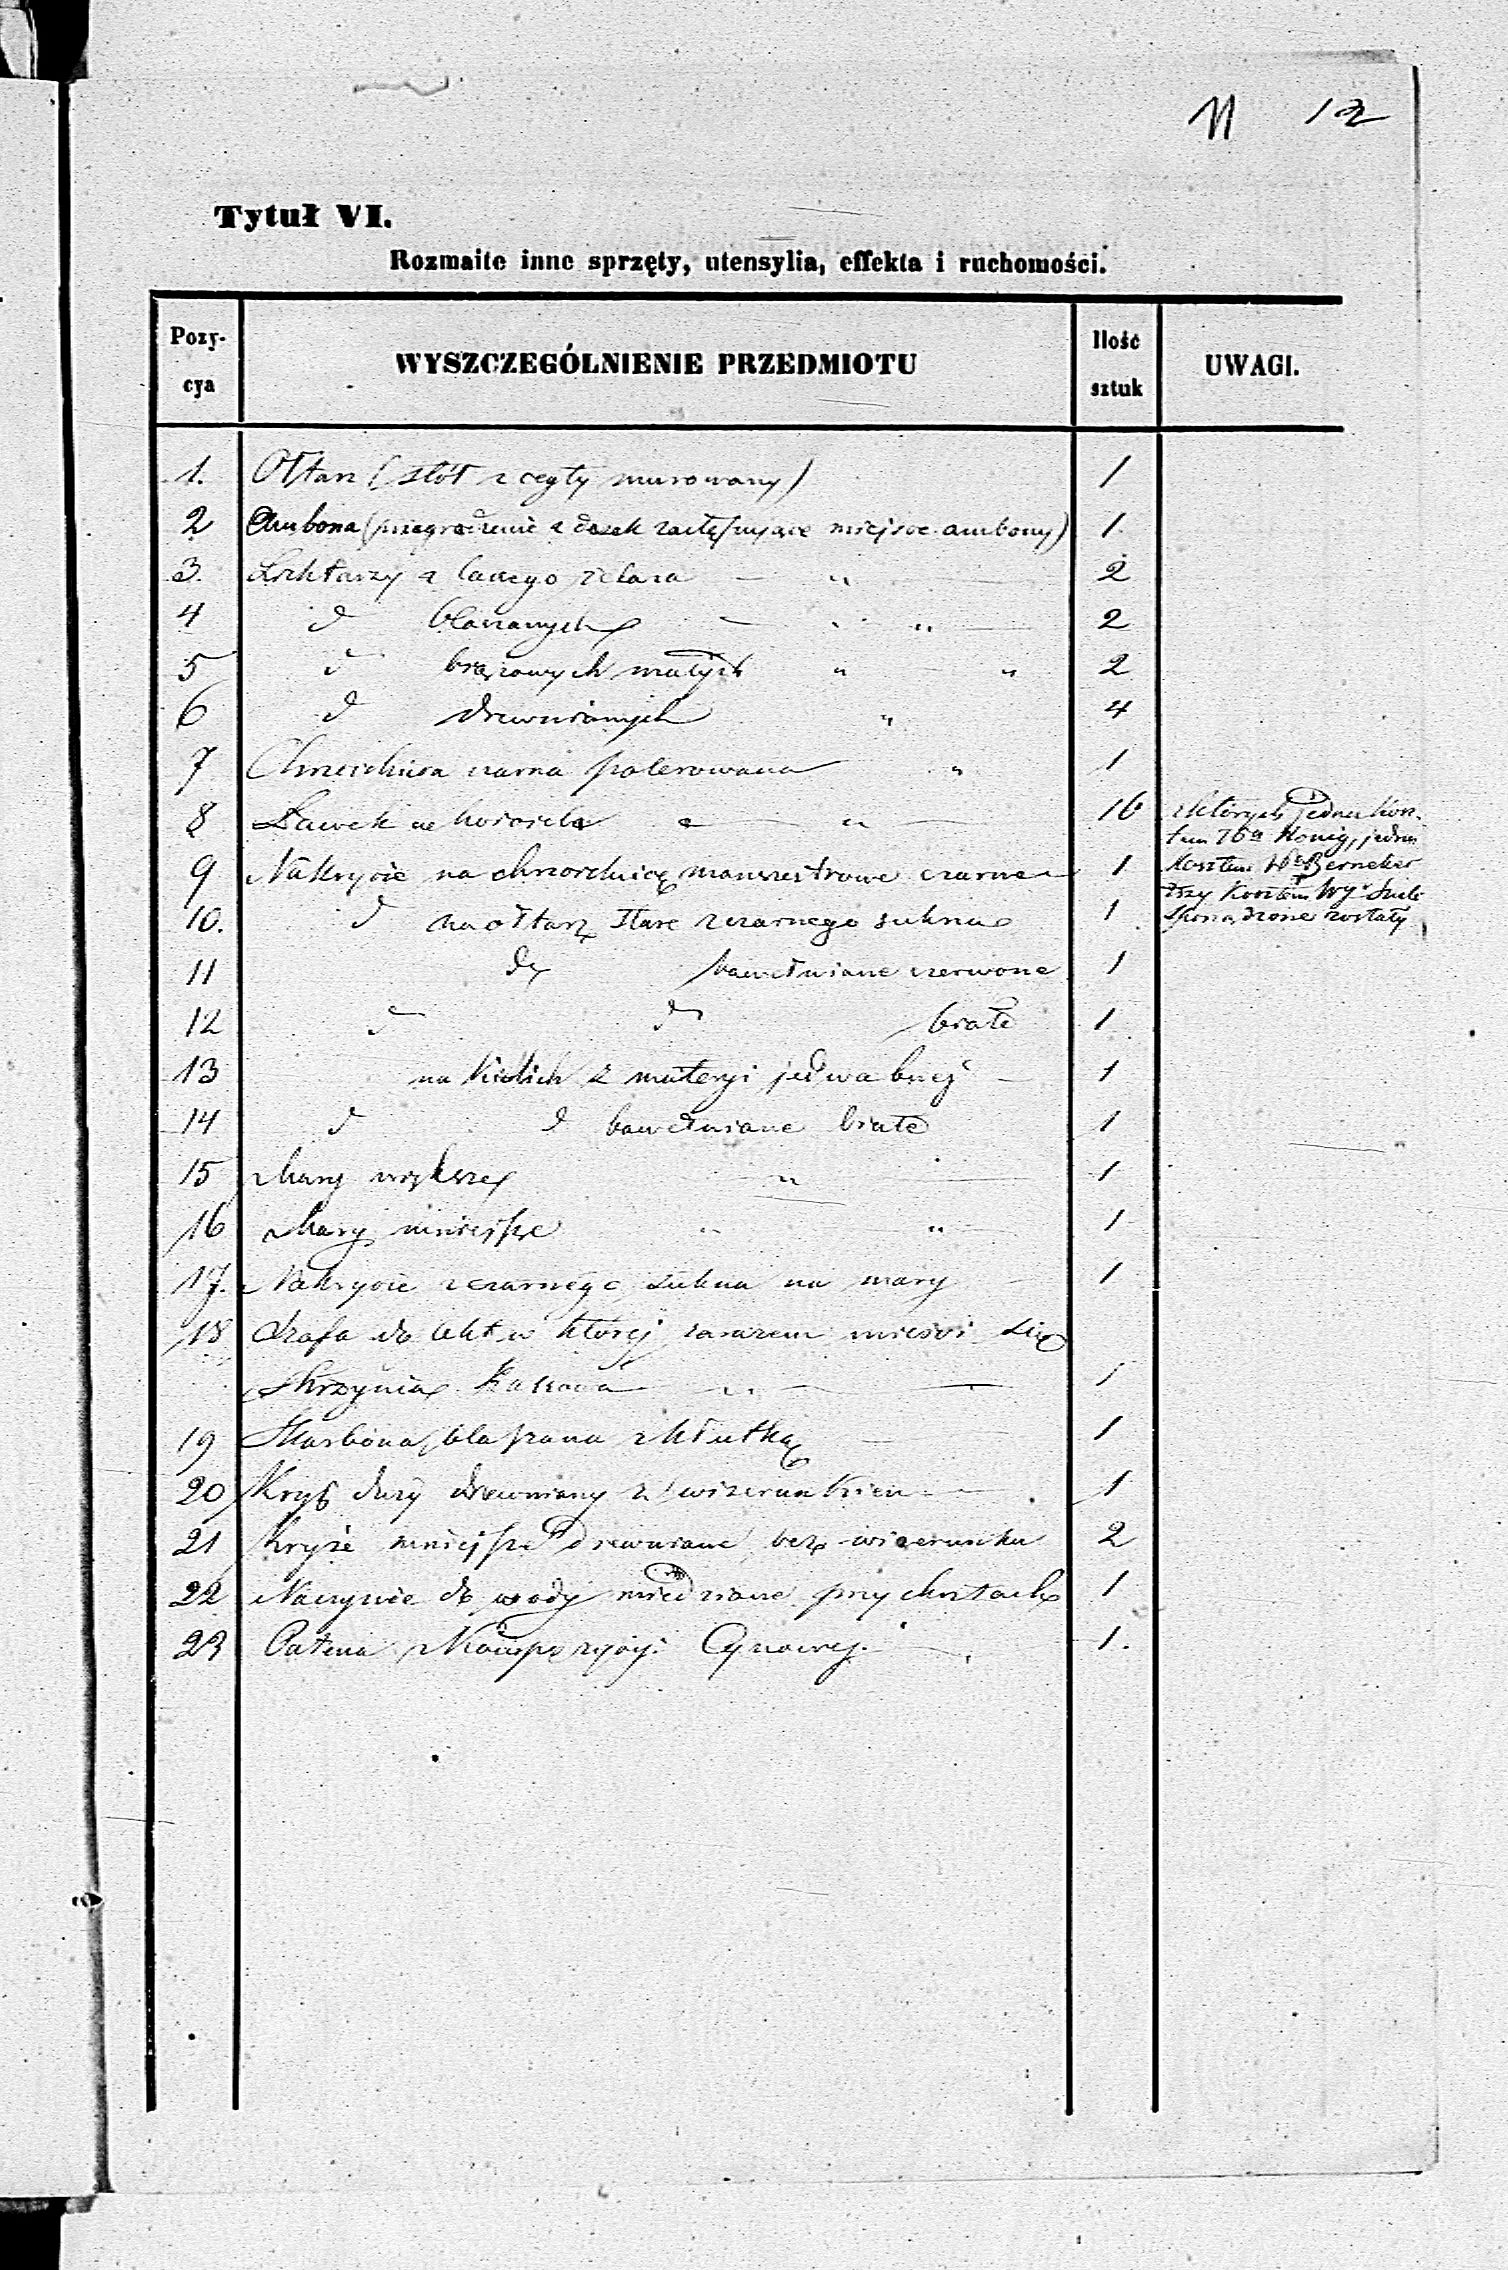 11 12
Tytuł VI.
Rozmaite inne sprzęty, utensylia, effekta i ruchomości.
Pozycya WYSZCZEGÓLNIENIE PRZEDMIOTU Ilość sztuk UWAGI.
1. Ołtarz (stół z cegły murowany) 1
2 Ambona (przegrodzenie z desek zastępujące miejsce ambony) 1.
3. Lichtarzy z lanego żelaza — " — 2
4 d blaszanych — " — 2
5 d brązowych małych " " 2
6 d drewnianych " 4
7 Chrzcielnica czarna polerowana " 1
8 Ławek w kościele " — " — 16 z których jedna kosz-
tem Hönig, jedna
9 Nakrycie na chrzcielnicę manszestrowe czarne — 1 kosztem Berneker
trzy kosztem
10. d na ołtarz stare z czarnego sukna 1 sporządzone zostały
11 do bawełniane czerwone 1
12 d d białe 1
13 na kielich z materyi jedwabnej — 1
14 d d bawełniane białe 1
15 Mary większe " — 1
16 Mary mniejsze " " — 1
17. Nakrycie z czarnego sukna na mary — 1
18 Szafa do akt w której zarazem mieści się
Skrzynia kasowa — " — 1
19 Skarbona blaszana z kłutką — 1
20 Krzyż duży drewniany z wizerunkiem — 1
21 Krzyże mniejsze drewniane bez wizerunku 2
22 Naczynie do wody miedziane przy chrztach 1
23 Patena z kompozycyi Cynowej. — 1.